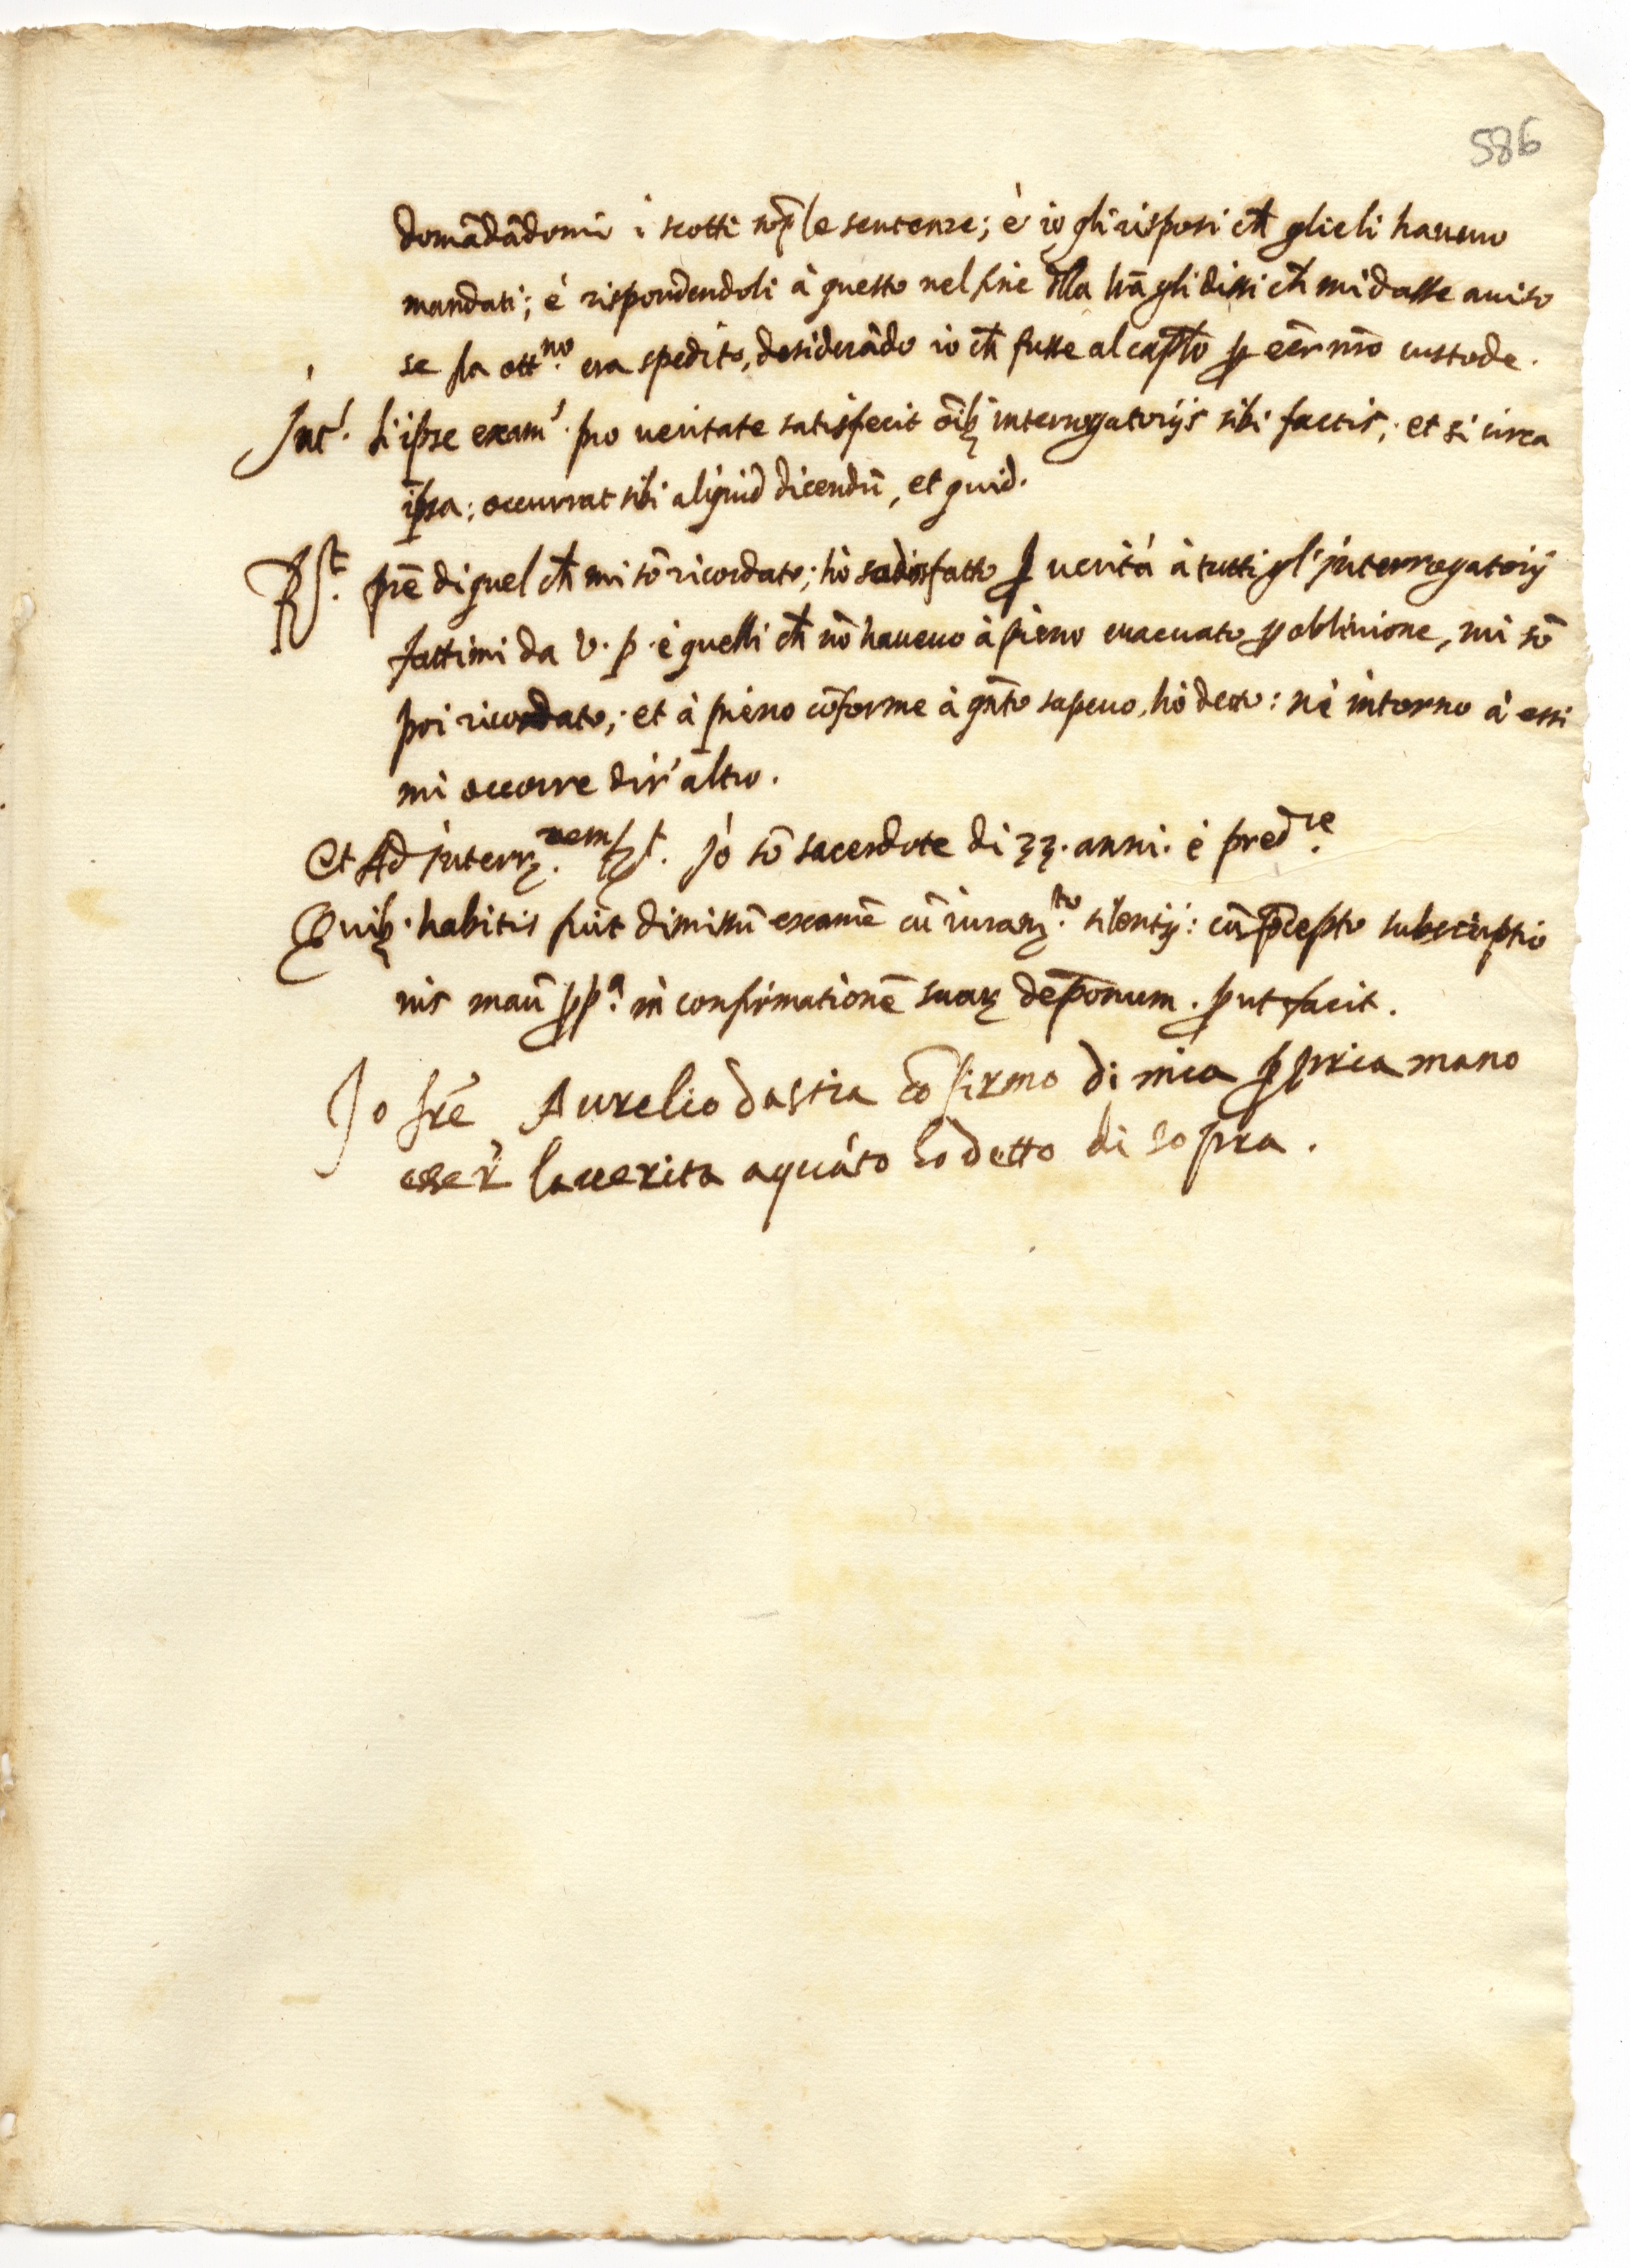 586
domãdãdomi i scotti sop̃ le sentenze; è io gli risposi ch̃ glieli haveuo
mandati; è rispondendoli à questo nel fine d̃lla lr̃a gli dissi ch̃ mi dasse auiso
se fra ott.no era spedito, desiderãdo io ch̃ fusse al cap̃lo ꝑ eẽr nr̃o custode.
Int. si ipse exam. pro ueritate satisfecit õibꝫ interrogatorijs sibi factis; et si circa
ip̃sa: occurrat sibi aliquid dicendũ, et quid.
Rt. pr̃e di quel ch̃ mi sõ ricordato; hò sadisfatto ꝑ uerità à tutti gl'interrogatorij
fattimi da V. P. è quelli ch̃ nõ haueuo à pieno euacuato ꝑ obliuione, mi sõ
poi ricordato; et à pieno cõforme à qñto sapeuo, hò detto: nè intorno à essi
mi occorre dir' altro.
Et Ad interr.nem Rt. Jo sõ sacerdote di 33. anni. è pred.re
Quibꝫ habitis fuit dimissũ examẽ cũ iuram.to silentij: cũ p̃cepto subscriptio
nis manũ ꝓp.a in confirmationẽ suaꝝ dep̃onum. ꝓut facit.
Jo fr̃e Aurelio dastia cõfirmo di mia ꝓpria mano
esser la uerita a quãto hò detto di sopra.